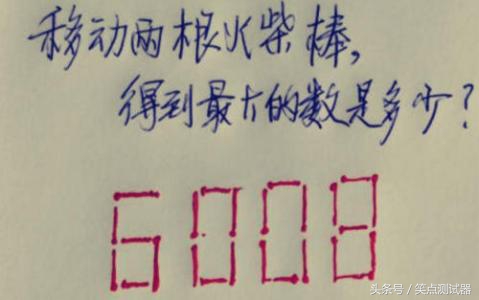 移动两根火柴棒,
得到最大的数是多少?
6008
头条号/笑点测试器